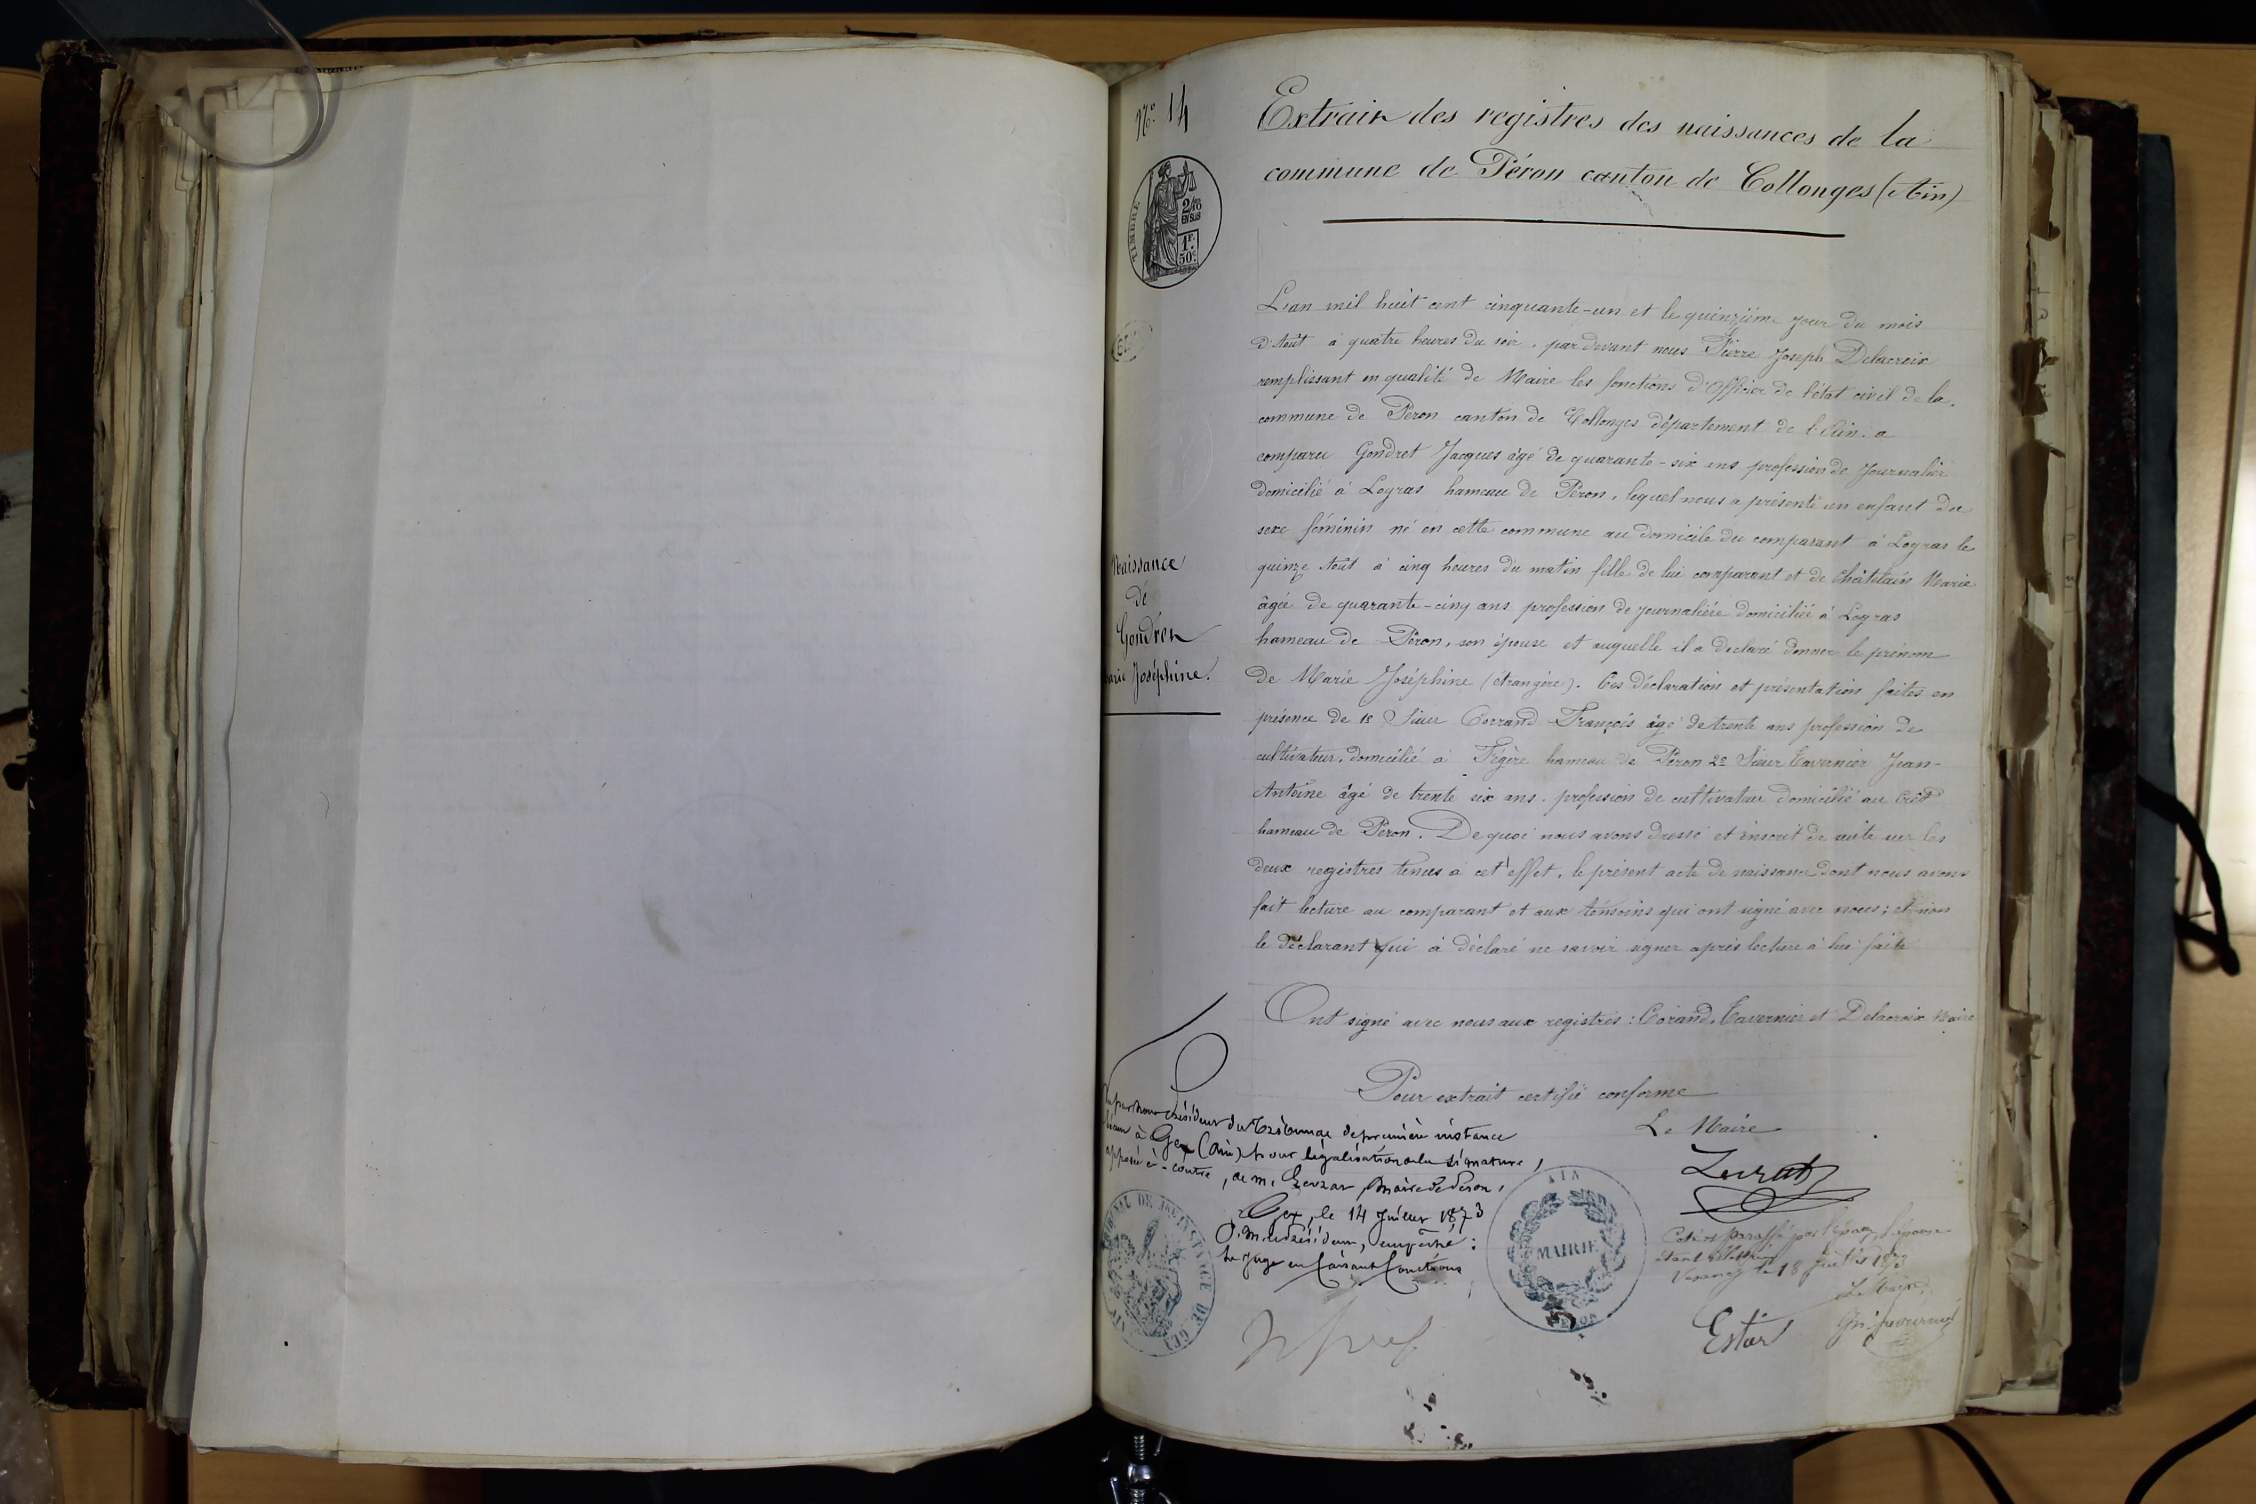 No. 14
Extrait des registres des naissances de la
commune de Péron canton de Collonges (Ain)
TIMBRE
2/10
EN SUS
1F.
50c.
L'an mil huit cent cinquante-un et le quinzième jour du mois
d'Aout à quatre heures du soir, par devant nous Pierre Joseph Delacroix
remplissant en qualité de Maire les fonctions d'Officier de l'état civil de la
commune de Péron canton de Collonges département de l'Ain. a
comparu Gondret Jacques âgé de quarante-six ans profession de Journalier
domicilié à Logras hameau de Péron, lequel nous a présenté un enfant du
sexe féminin né en cette commune au domicile du comparant à Logras le
quinze Aout à cinq heures du matin fille de lui comparant et de Châtelain Marie
âgée de quarante-cinq ans profession de journalière domiciliée à Logras
hameau de Péron, son épouse et auquelle il a déclaré donner le prénom
de Marie Joséphine (étrangère). Ces déclaration et présentation faites en
présence de 1e Sieur Corrand François âgé de trente ans profession de
cultivateur, domicilié à Fégère hameau de Péron 2e Sieur Tavernier Jean-
Antoine âgé de trente six ans. profession de cultivateur domicilié au Crêt
hameau de Péron. De quoi nous avons dressé et inscrit de suite sur les
deux registres tenus à cet effet, le présent acte de naissance dont nous avons
fait lecture au comparant et aux témoins qui ont signé avec nous; et non
le déclarant qui à déclaré ne savoir signer après lecture à lui faite
Naissance
de
Gondret
Marie Joséphine.
Ont signé avec nous aux registres: Corand, Tavernier et Delacroix Maire
Pour extrait certifié conforme
Le Maire
Vu par nous Président du Tribunal de première instance
séant à Gex (Ain) pour légalisation de la signature,
apposée ci-contre, de M. , maire de Péron,
Gex, le 14 Juillet 1873
P. M. le Président, empêché:
le Juge en faisant fonctions
TRIBUNAL DE 1ERE INSTANCE DE GEX
AIN
MAIRIE
PERON
Coté et paraffé par l'époux, l'épouse
étant illettrée
le 18 Juillet 1873
Le Maire